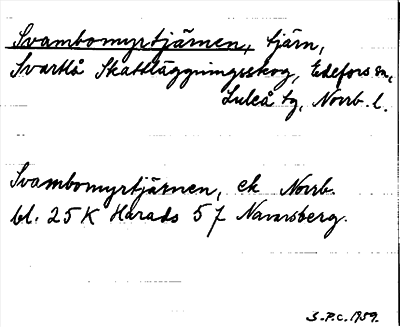 Svambomyrtjärnen, tjärn,
Svartlå Skattläggningsskog, Edefors sn,
Luleå tg, Norrb. l.
Svambomyrtjärnen, ek Norrb.
bl. 25 K Harads 5 f Navarsberg.
S.P.C. 1959.